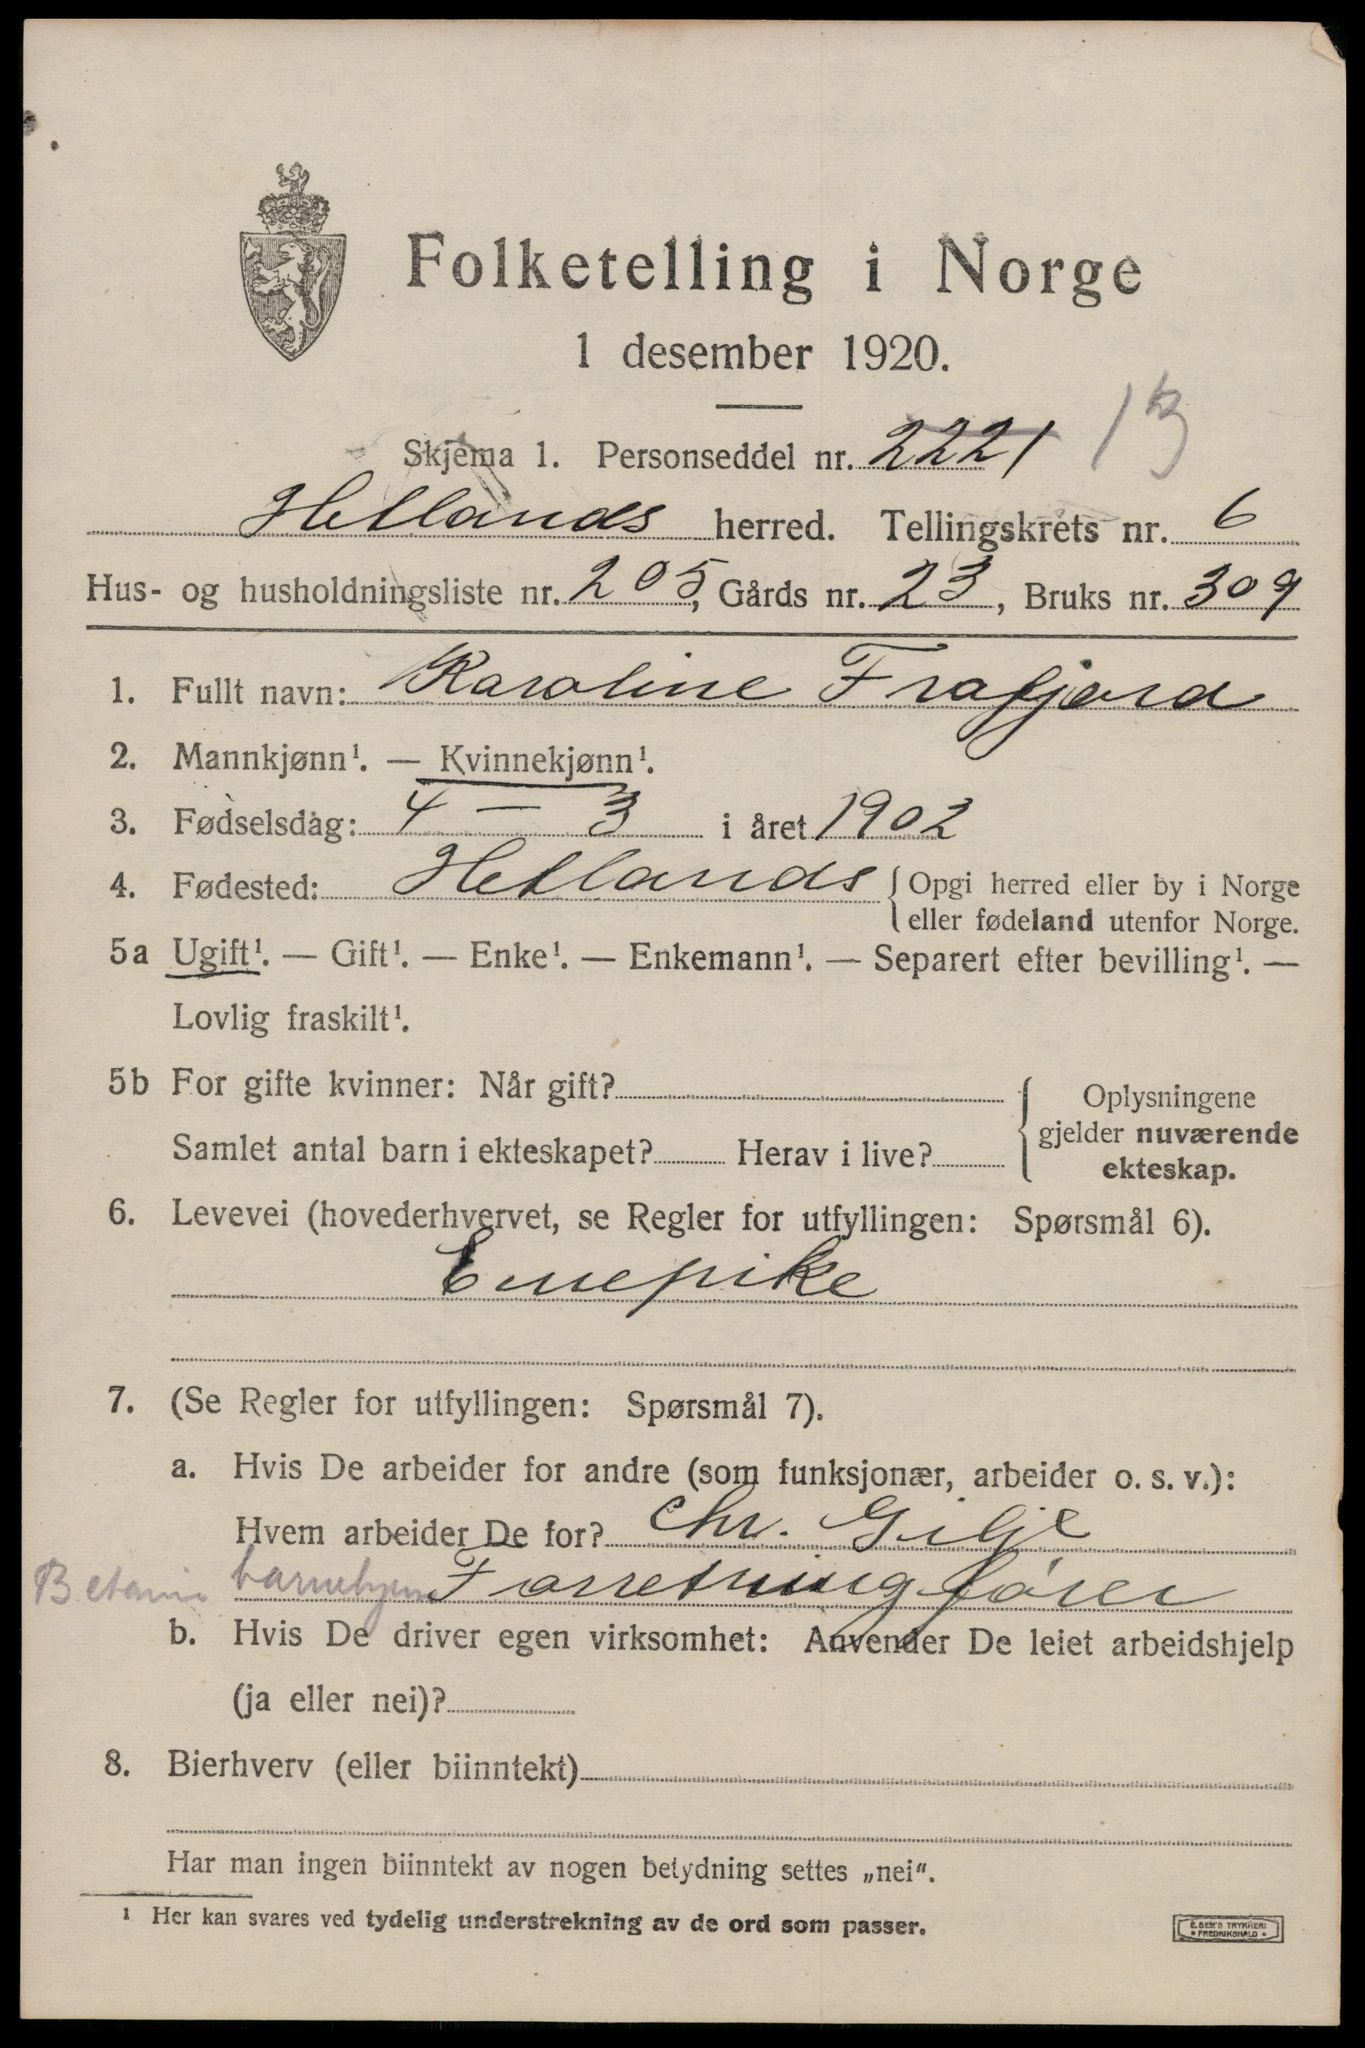 Folketelling i Norge
1 desember 1920.
Skjema 1. Personseddel nr. 2221
Hetlands herred. Tellingskrets nr. 6
Hus- og husholdningsliste nr. 205, Gårds nr. 23, Bruks nr. 309
1. Fullt navn: Karoline Frafjord
2. Mannkjønn¹. — Kvinnekjønn¹.
3. Fødselsdag: 4 — 3 i året 1902
4. Fødested: Hetlands { Opgi herred eller by i Norge
eller fødeland utenfor Norge.
5a Ugift¹. — Gift¹. — Enke¹. — Enkemann¹. — Separert efter bevilling¹. —
Lovlig fraskilt¹.
5b For gifte kvinner: Når gift?
Samlet antal barn i ekteskapet? Herav i live?
Oplysningene
gjelder nuværende
ekteskap.
6. Levevei (hovederhvervet, se Regler for utfyllingen: Spørsmål 6).
Enepike
7. (Se Regler for utfyllingen: Spørsmål 7).
a. Hvis De arbeider for andre (som funksjonær, arbeider o. s. v.):
Hvem arbeider De for? Chr. Gilje
Betania barnehjem Forretningfører
b. Hvis De driver egen virksomhet: Anvender De leiet arbeidshjelp
(ja eller nei)?
8. Bierhverv (eller biinntekt)
Har man ingen biinntekt av nogen betydning settes „nei“.
¹ Her kan svares ved tydelig understrekning av de ord som passer.
E. SEM'S TRYKKERI
• FREDRIKSHALD •